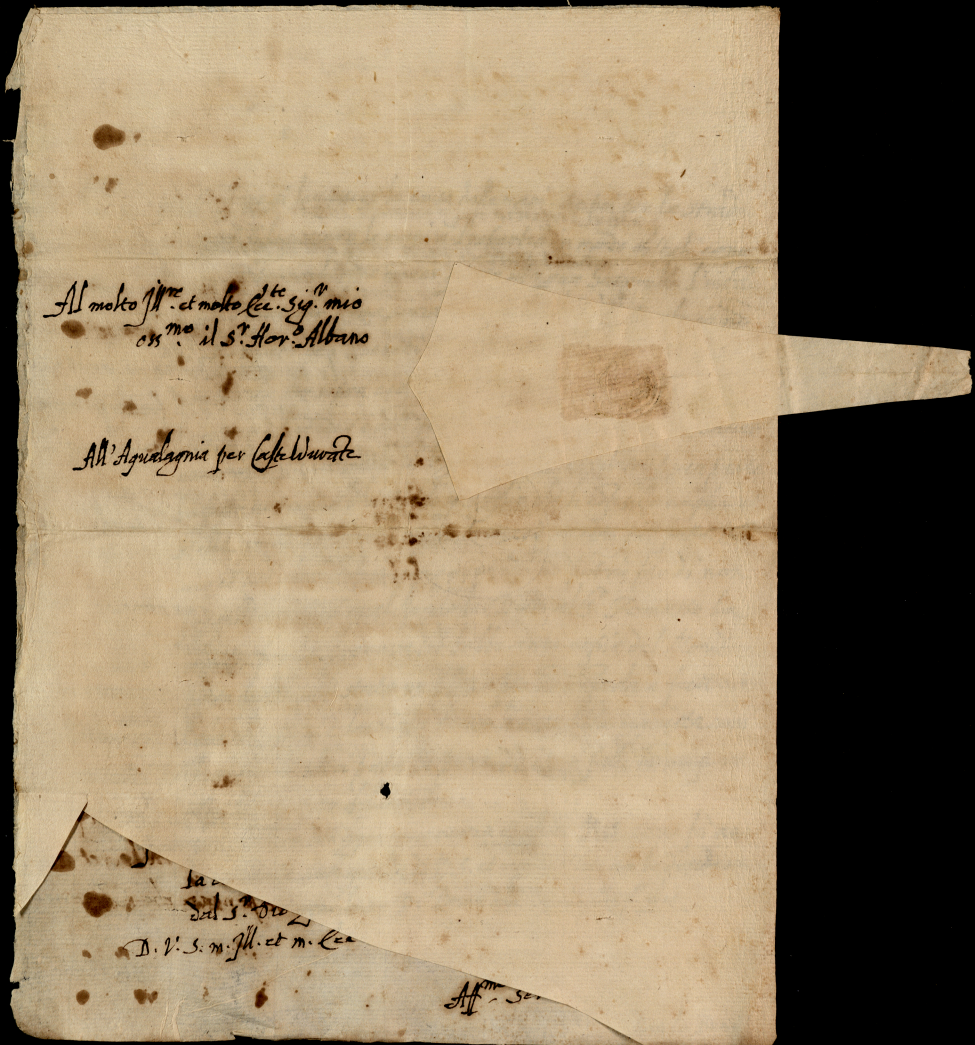 Al molto Ill.re et molto Ecc.te Sig.r mio
oss.mo il S.r Hor.o Albano
All'Aqualagnia per Casteldurate
la
dal S.r
D. V. S. m. Ill. et m. Ecc
Aff.mo Ser